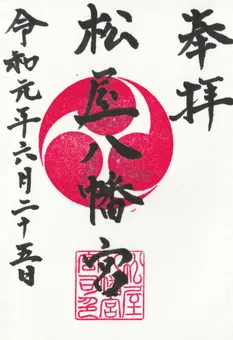 奉拝
松尾八幡宮
令和元年六月二十五日